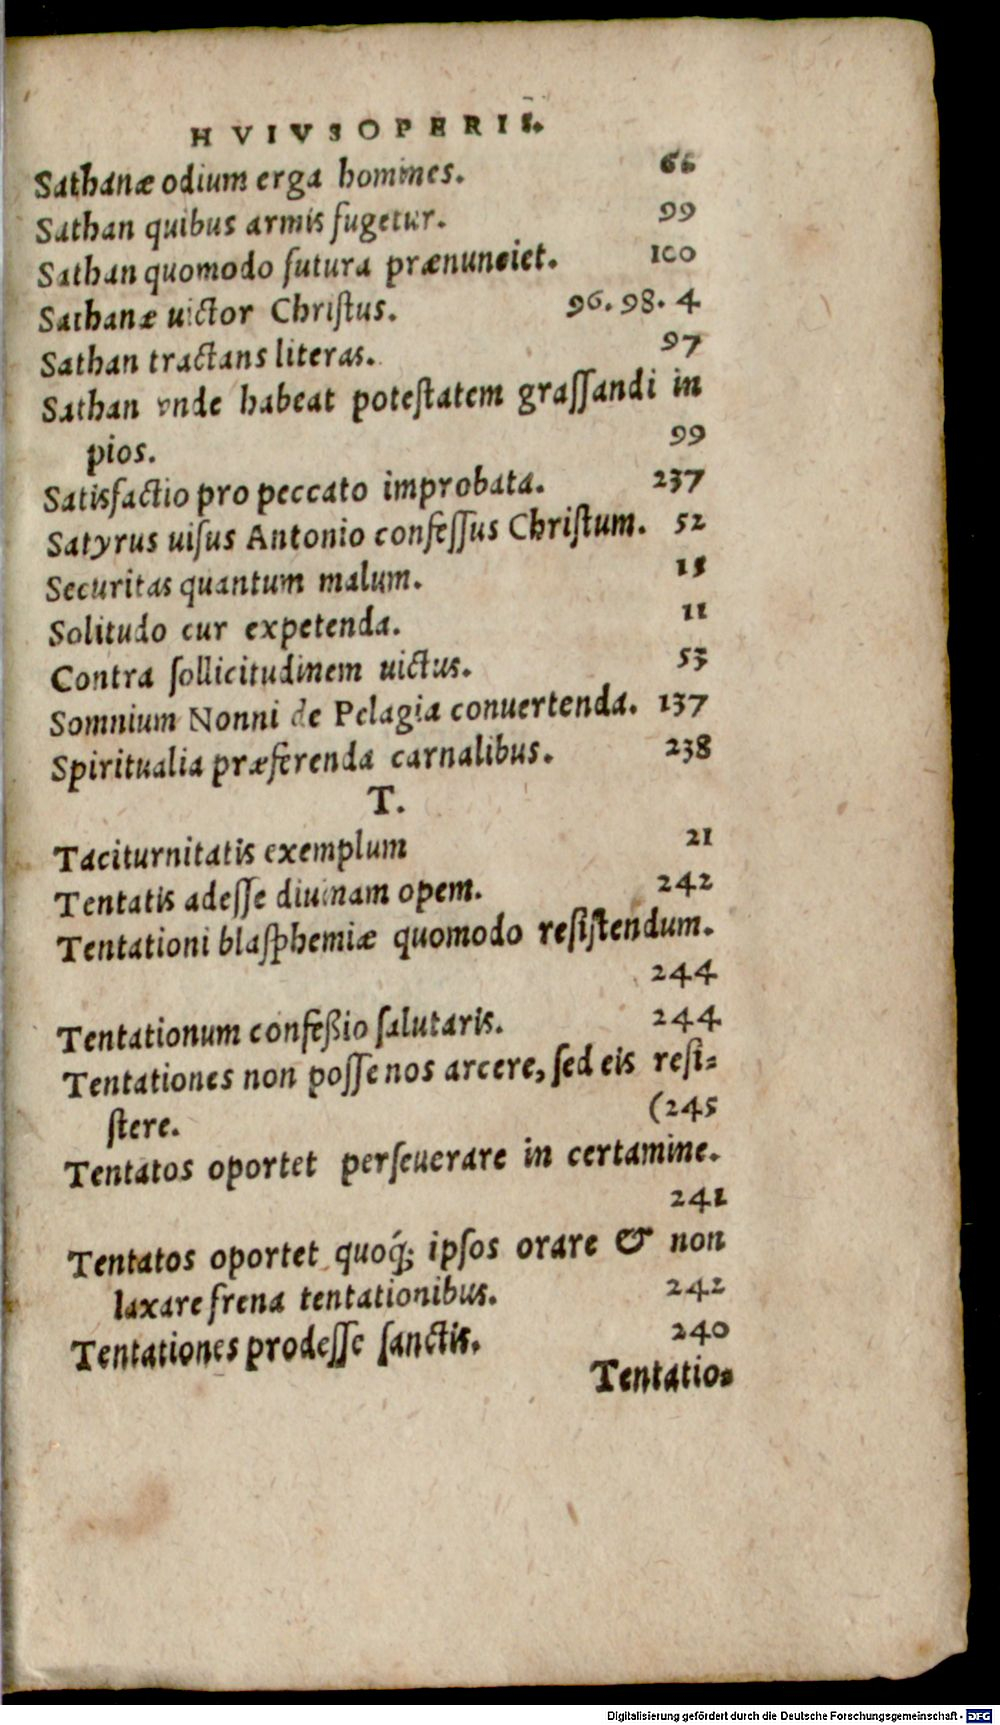 HVIVS OPERIS.
Sathanæ odium erga homines. 66
Sathan quibus armis fugetur. 99
Sathan quomodo futura prænunciet. 100
Sathanæ uictor Christus. 96. 98. 4
Sathan tractans literas. 97
Sathan vnde habeat potestatem grassandi in
pios. 99
Satisfactio pro peccato improbata. 237
Satyrus uisus Antonio confessus Christum. 52
Securitas quantum malum. 15
Solitudo cur expetenda. 11
Contra sollicitudinem uictus. 53
Somnium Nonni de Pelagia conuertenda. 137
Spiritualia præferenda carnalibus. 238
T.
Taciturnitatis exemplum 21
Tentatis adesse diuinam opem. 242
Tentationi blasphemiæ quomodo resistendum.
244
Tentationum confeßio salutaris. 244
Tentationes non posse nos arcere, sed eis resi=
stere. (245
Tentatos oportet perseuerare in certamine.
241
Tentatos oportet quoq́; ipsos orare & non
laxare frena tentationibus. 242
Tentationes prodesse sanctis. 240
Tentatio=
Digitalisierung gefördert durch die Deutsche Forschungsgemeinschaft - DFG